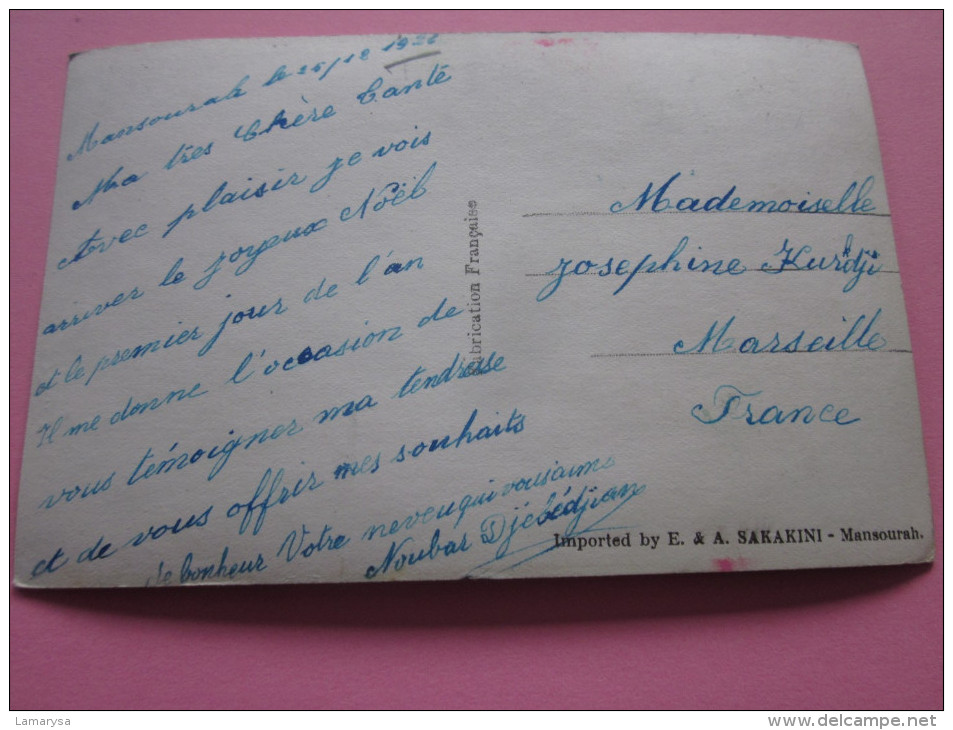 Mansourah le 25/12 1926
Ma très Chère Tante
Avec plaisir je vois
arriver le joyeux Noël
et le premier jour de l'an
Il me donne l'occasion de
vous témoigner ma tendresse
et de vous offrir mes souhaits
de bonheur Votre neveu qui vous aime
Noubar Djébédjian
Fabrication Française
Mademoiselle
Josephine Kurdji
Marseille
France
Imported by E. & A. SAKAKINI - Mansourah.
Lamarysa
www.delcampe.net